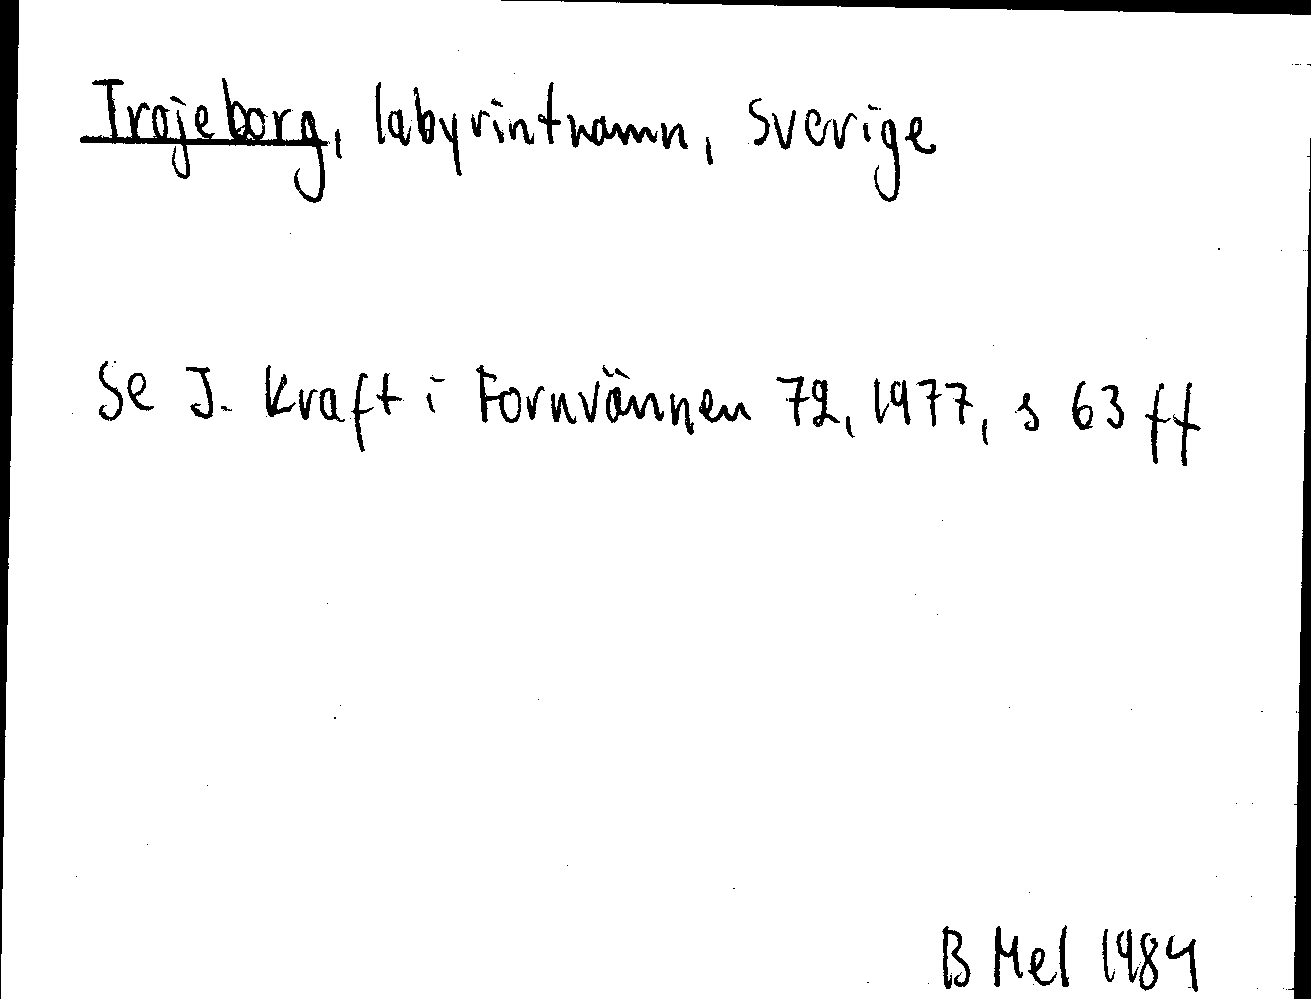 Trojeborg, labyrintnamn, Sverige
Se J. Kraft i Fornvännen 72, 1977, s 63 ff
B Mel 1984